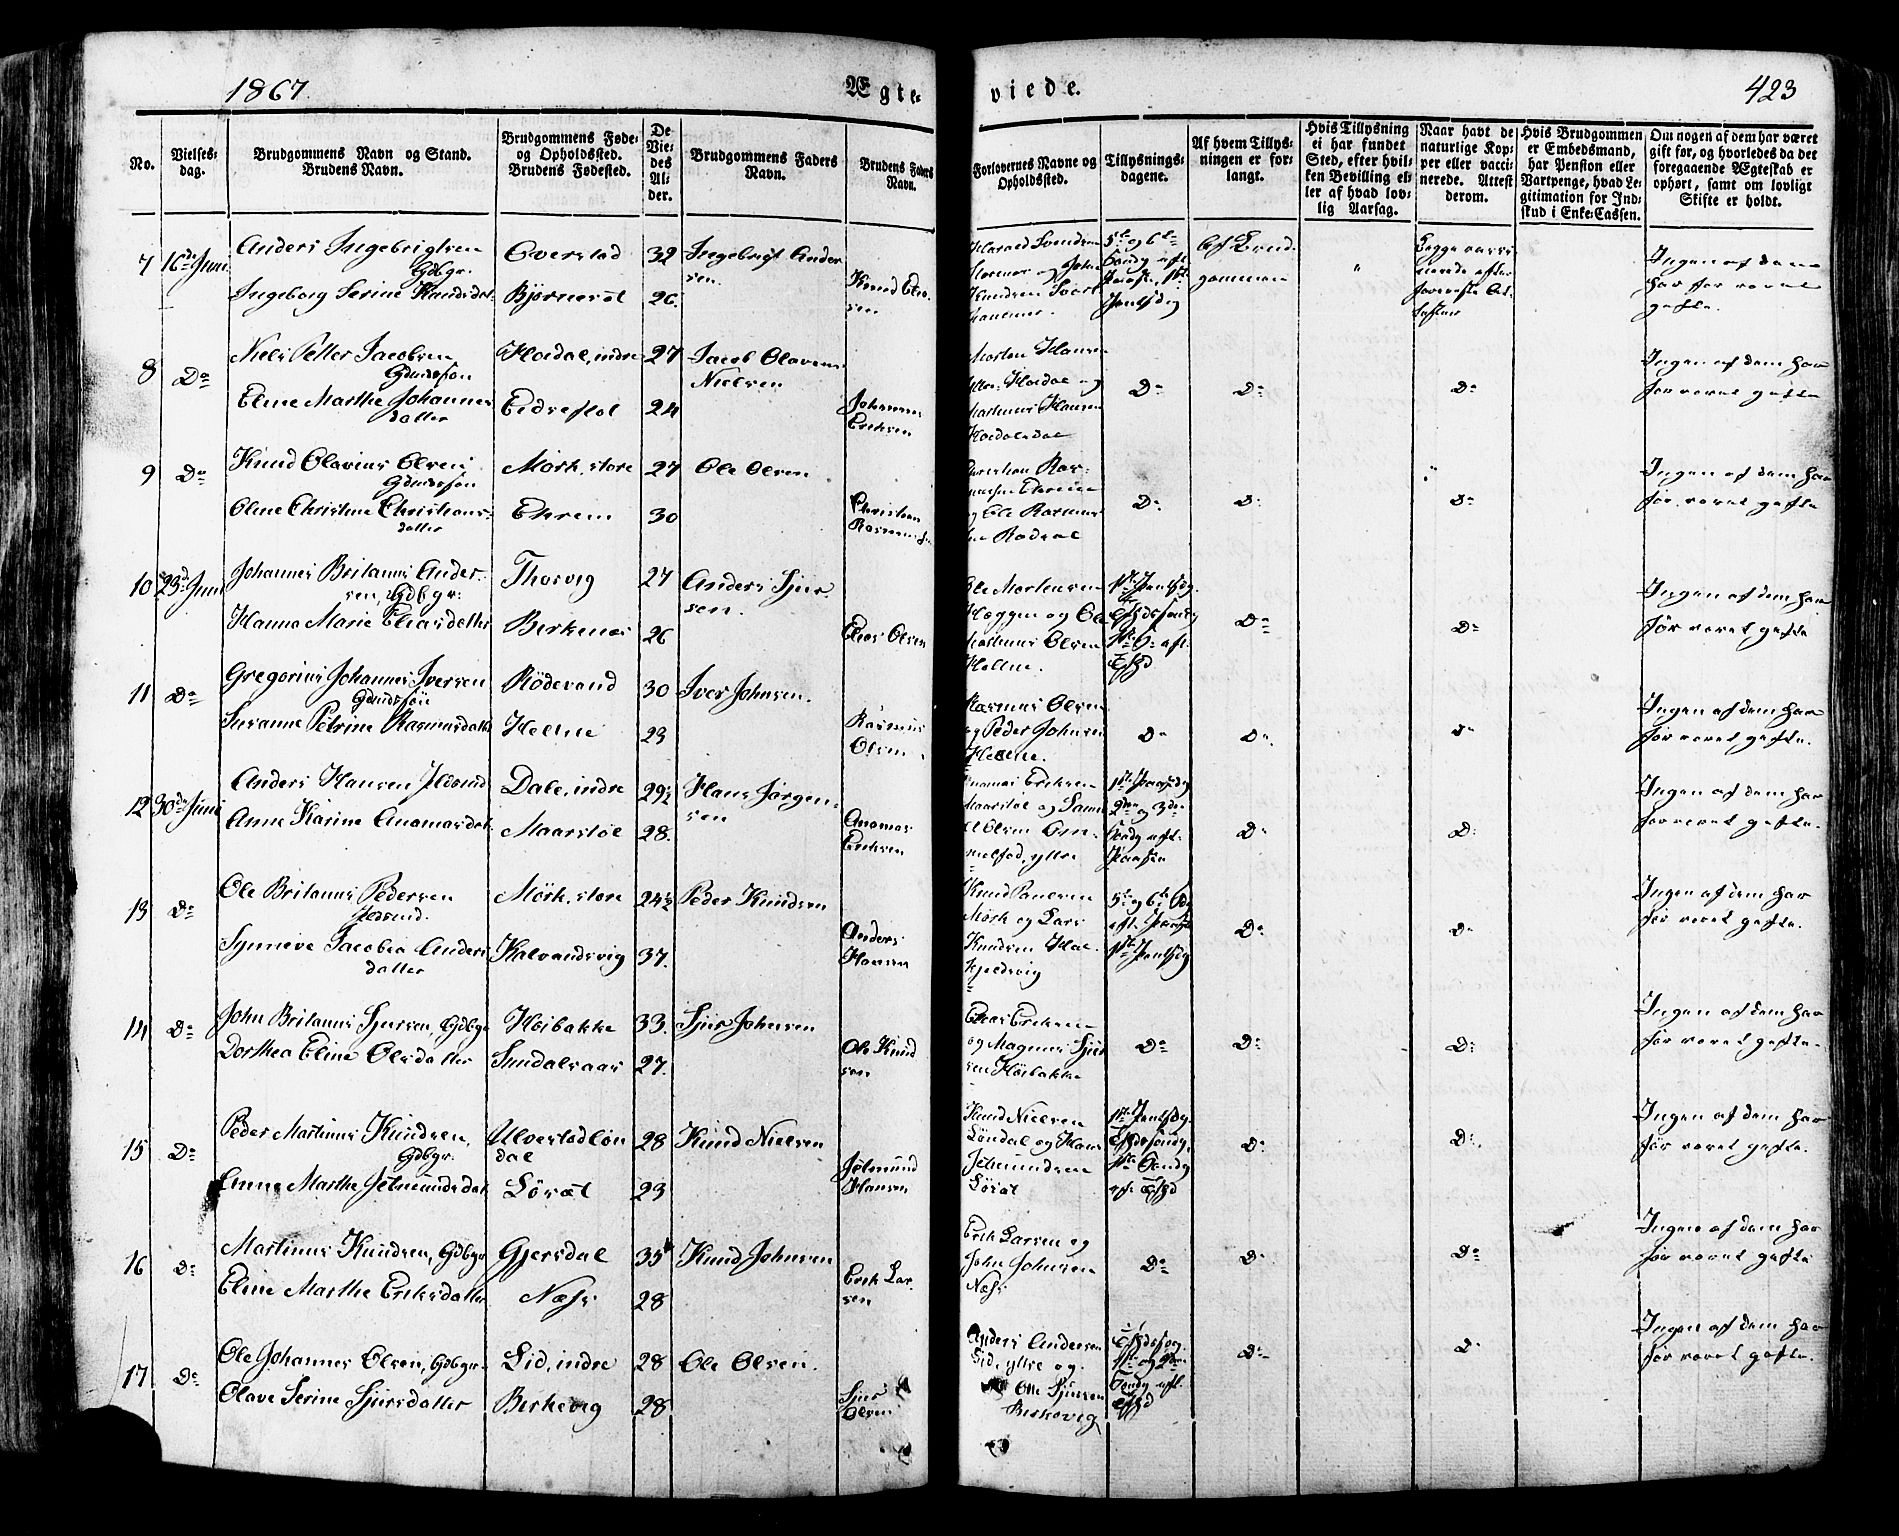 1867.
Ægte-
viede.
423
No.
Vielses-
dag.
Brudgommens Navn og Stand.
Brudens Navn.
Brudgommens Føde-
og Opholdssted.
Brudens Fødested.
De
Vie-
des
Al-
der.
Brudgommens Faders
Navn.
Brudens Faders
Navn.
Forlovernes Navne og
Opholdssted.
Tillysnings-
dagene.
Af hvem Tillys-
ningen er for-
langt.
Hvis Tillysning
ei har fundet
Sted, efter hvil-
ken Bevilling el-
ler af hvad lov-
lig Aarsag.
Naar havt de
naturlige Kop-
per eller vacci-
nerede. Attest
derom.
Hvis Brudgommen
er Embedsmand,
har Pension eller
Vartpenge, hvad Le-
gitimation for Ind-
skud i Enke-Cassen.
Om nogen af dem har været
gift før, og hvorledes da det
foregaaende Ægteskab er
ophørt, samt om lovligt
Skifte er holdt.
7
16de Juni
Anders Ingebrigtsen
Gdbgr.
Ingeborg Serine Knudsdat
Overstad
Bjørnestøl
32
26.
Ingebrigt Ander
sen.
Knud Elia-
sen
Harald Svendsen
og John
Knudsen
5te og 6te
Søndg eft.
Paaske, 1st
Pentsdg
Af Brud-
gommen
"
Begge vacci-
nerede efter
foreviste At-
tester
Ingen af dem
har før været
gifte.
8
Do
Niels Petter Jacobsen
Gdmdssøn
Eline Marthe Johannes
datter
Hovdal, indre
Eidsestøl
27
24
Jacob Olavus
Nielsen
Johannes
Eriksen
Morten Hansen
og
Martinus Hansen
Do
Do
Do
Ingen af dem har
før været gifte
9
Do
Knud Olavius Olsen
Gdmdssøn
Oline Christine Christians-
datter
Mørk, store
Ekrem
27
30
Ole Olsen
Christian
Rasmussen
Christian Ras-
mussen Ekrem
og Ole Rasmus
Do
D:
Do
Ingen af dem har
før været gifte
10
23d Juni
Johannes Britanus Ander-
sen, Gdbgr.
Hanna Marie Eliasdatter
Thorvig
Berkenes
27
26
Anders Sjur
sen.
Elias Olsen
Ole Mortensen
Hæggem og Ole
Martinus Olsen
Helme.
1st Pentsdg.
Do
Do
Ingen af dem har
før været gifte
11
Do
Gregorius Johannes Iversen
Gdmdssøn
Susanne Petrine Rasmusdatt
Rødevand
Helme
30
23
Iver Johnsen.
Rasmus
Olsen
Rasmus Olsen
og Peder Johnsen
Helme.
Do
Do.
Do
Ingen af dem har
før været gifte.
12
30de Juni
Anders Hansen
Anne Karine Anamasdat.
Dale, indre
Maarstøl
29½
28.
Hans Jørgen-
sen
Anamas
Eriksen
Anamas Eriksen
Maarstøl og
Olsen
ytre
2den og 3die
Søndg eft.
Paasken
D:
D:
Ingen af dem har
før været gifte.
13
Do
Ole Britanus Pedersen
Synneve Jacobea Anders
datter
Mørk, store
Kalvandsvig
24½
37.
Peder Knudsen
Anders
Hansen
Knud Paulsen
Mørk og Lars
Knudsen
5te og 6te
eft. Paaske
1ste Pentsdg
Do
Do
Ingen af dem har
før været gifte.
14
Do
John Britanus Sjursen, Gdbgr
Dorthea Eline Olsdatter
Høibakke
Sundalsaas
33.
27.
Sjur Johnsen
Ole Knud
sen
Elias Eriksen
og Magnus Sjur
sen Høibakke
Do
Do
D:
Ingen af dem har
før været gifte.
15
Do
Peder Martinus Knudsen,
Gdbgr.
Emne Marthe Jetmundsdat
Ulvestadløn
dal
Løset
28
23
Knud Nielsen
Jetmund
Hansen
Knud Nielsen
Løndal og Hans
Jetmundsen
Løset
1ste Pentsdg.
D:
D:
Ingen af dem har
før været gifte.
16
Do
Martinus Knudsen, Gdbgr
Eline Marthe Eriksdatter
Gjersdal
Næss
35
28
Knud Johnsen
Erik Lar
sen
Erik Larsen og
John Johnsen
Næss
Do
Do
Do
Ingen af dem har
før været gifte
17
Do
Ole Johannes Olsen, Gdbgr.
Olave Serine Sjursdatter
Lid, indre
Berkevig
28
28
Ole Olsen.
Sjur
Olsen
Anders Andersen
Lid, ytre og
Ole Sjursen
Berkevig
Do
Do
Ingen af dem har
før været gifte.